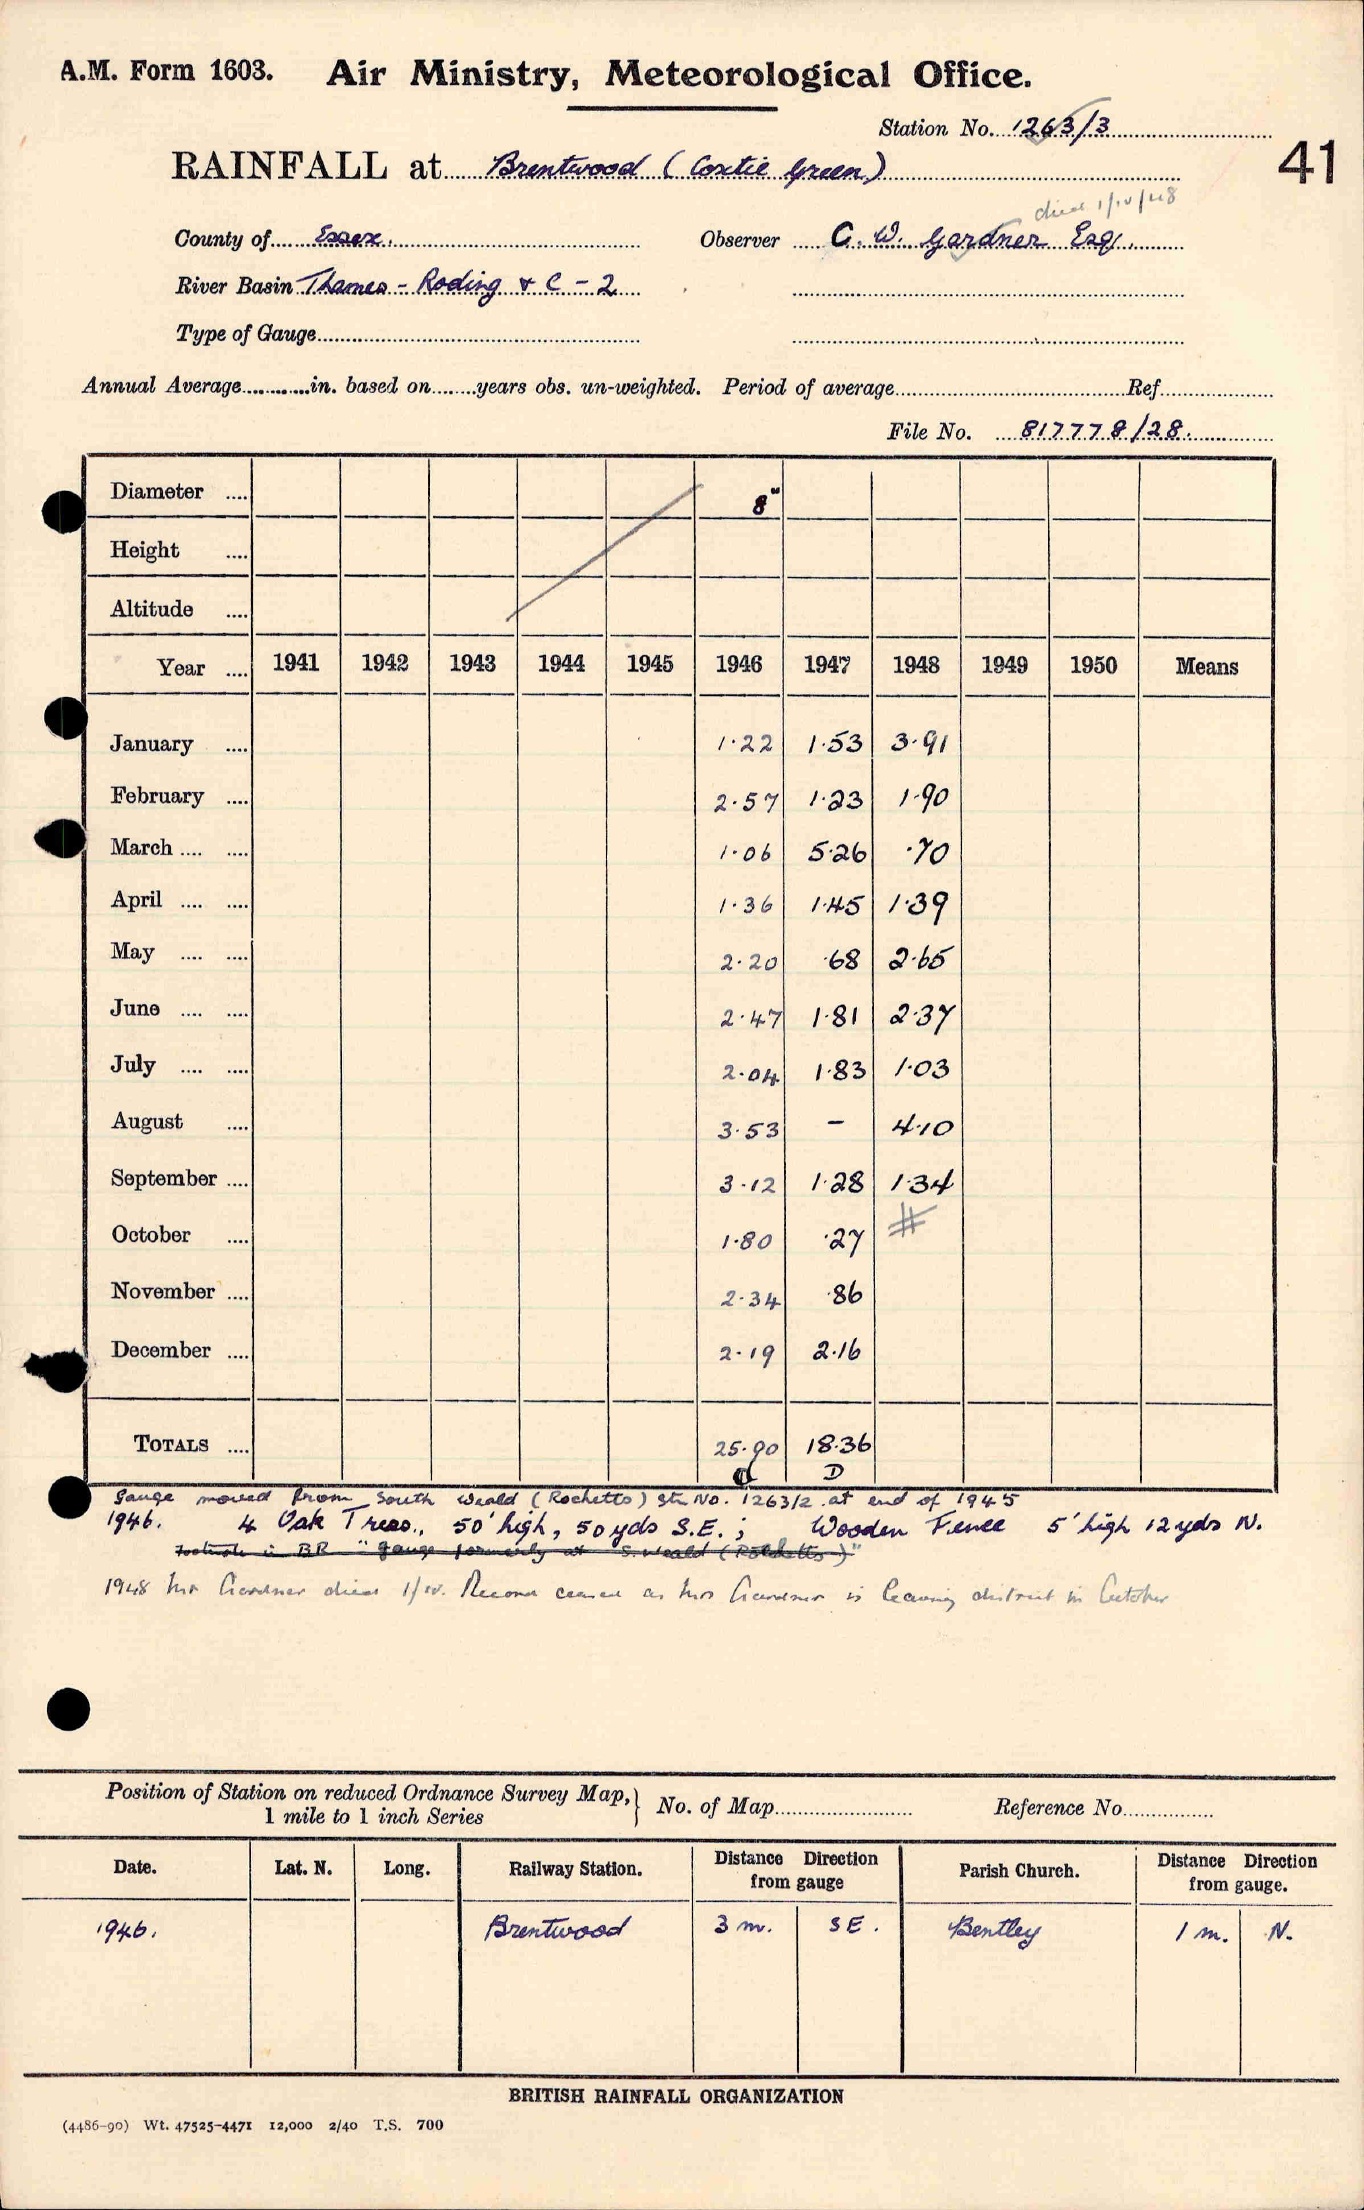 A.M. Form 1603. Air Ministry, Meteorological Office.
Station No. 1263/3
41
RAINFALL at Brentwood (Coxtie Green)
died 1/10/48
County of Essex. Observer C. W. Gardner Esq.
River Basin Thames - Roding & C - 2
Type of Gauge
Annual Average in. based on years obs. un-weighted. Period of average Ref.
File No. 817778/28.
Diameter .... 8"
Height ....
Altitude ....
Year .... 1941 1942 1943 1944 1945 1946 1947 1948 1949 1950 Means
January .... 1·22 1·53 3·91
February .... 2·57 1·23 1·90
March .... .... 1·06 5·26 ·70
April .... .... 1·36 1·45 1·39
May .... .... 2·20 ·68 2·65
June .... .... 2·47 1·81 2·37
July .... .... 2·04 1·83 1·03
August .... 3·53 - 4·10
September .... 3·12 1·28 1·34
October .... 1·80 ·27 #
November .... 2·34 ·86
December .... 2·19 2·16
TOTALS .... 25·90 18·36
d D
Gauge moved from South Weald (Rochetts) Stn No. 1263/2 at end of 1945
1946. 4 Oak Trees, 50' high, 50 yds S.E.; Wooden Fence 5' high 12 yds N.
Footnote in BR "Gauge formerly at S. Weald (Rochetts)"
1948 Mr Gardner died 1/10. Record ceased as Mrs Gardner is leaving district in October
Position of Station on reduced Ordnance Survey Map, 1 mile to 1 inch Series } No. of Map Reference No.
Date. Lat. N. Long. Railway Station. Distance Direction from gauge Parish Church. Distance Direction from gauge.
1946. Brentwood 3 m. SE. Bentley 1 m. N.
BRITISH RAINFALL ORGANIZATION
(4486-90) Wt. 47525-4471 12,000 2/40 T.S. 700